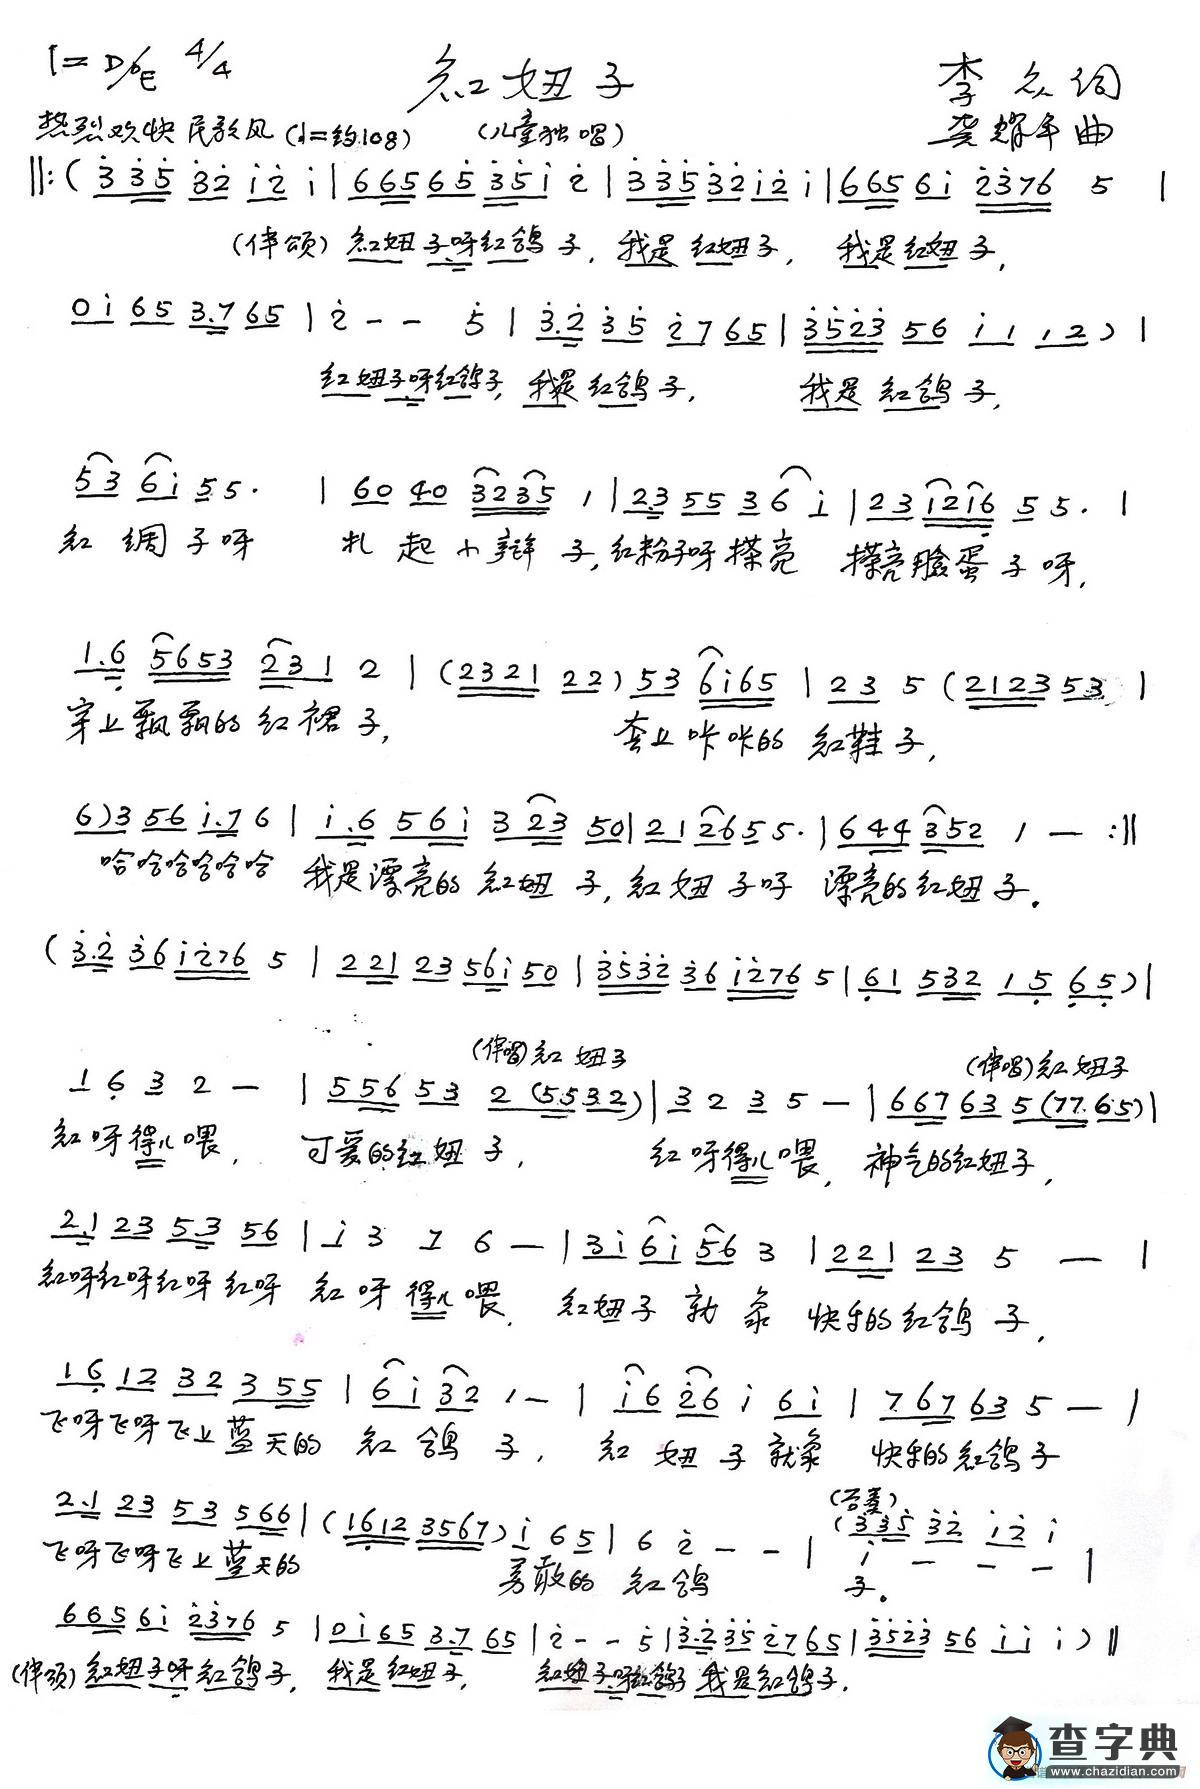 1=D/♭E 4/4
红妞子
李众词
热烈欢快民歌风(♩=约108)
(儿童独唱)
龚耀年曲
‖:(3̇3̇5̇ 3̇2̇ i2̇ i|665 65 3̇5̇i 2̇|3̇3̇5̇3̇2̇i2̇ i|6656i 2̇3̇76 5|
(伴颂)红妞子呀红鸽子,我是红妞子, 我是红妞子,
0i 65 3.765|2̇-- 5̇|3̇.2̇ 3̇5̇ 2̇765|3̇5̇2̇3̇ 56 i1 12)|
红妞子呀红鸽子,我是红鸽子, 我是红鸽子,
53 6i 55.|60 40 3235 1|23 55 36i|23i2i6 55.|
红绸子呀 扎起小辫子,红粉子呀搽亮 搽亮脸蛋子呀,
1.6 5653 231 2|(2321 22)53 6i65|23 5(2123 53|
穿上飘飘的红裙子, 套上咔咔的红鞋子,
6)3 56 i.76|i.6 56i 323 50|21 2655.|644352 1—:‖
哈哈哈哈哈哈 我是漂亮的红妞子,红妞子呀 漂亮的红妞子。
(3̇.2̇ 3̇6i2̇76 5|221 2356i50|3̇5̇3̇2̇ 3̇6 i2̇76 5|61 532 15 65)|
(伴唱)红妞子
(伴唱)红妞子
1 6 3 2—|55653 2(5532)|3 2 3 5—|66763 5(77.65)|
红呀得儿喂, 可爱的红妞子, 红呀得儿喂,神气的红妞子,
2.1 23 5.3 56|i 3 7 6—|3i 6i 56 3|221 23 5—|
红呀红呀红呀红呀 红呀得儿喂,红妞子就象 快乐的红鸽子,
16 12 32 355|6i32 1—|i6 2̇6 i 6i|767635—|
飞呀飞呀飞上蓝天的红鸽子, 红妞子就象 快乐的红鸽子
2.1 23 53 566|(1612 3567)i 65|6 2̇--|(3̇3̇5̇ 3̇2̇ i2̇ i
i---|
飞呀飞呀飞上蓝天的 勇敢的红鸽 子。
6656i 2̇3̇76 5|0i65 3.765|2̇--5̇|3̇.2̇3̇5̇ 2̇765|3̇5̇2̇3̇ 56 ii i)‖
(伴颂)红妞子呀红鸽子,我是红妞子, 红妞子呀红鸽子 我是红鸽子.
查字典
www.chazidian.com